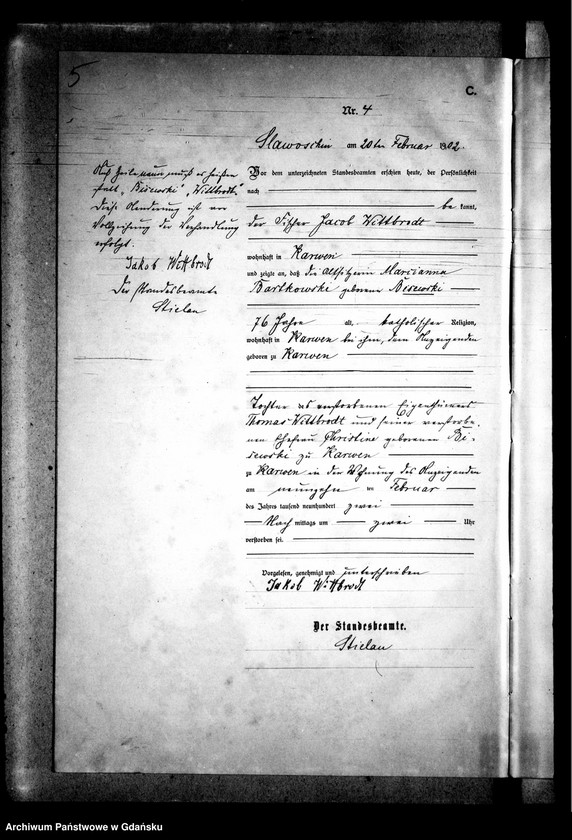 5
C.
Nr. 4
Slawoschin am 20ten Februar 1902.
Auf Zeile neun muß es heißen
statt „Bisewski“ „Wittbrodt“
Diese Aenderung ist vor
Vollziehung der Verhandlung
erfolgt.
Jakob Wittbrodt
Der Standesbeamte
Stielau
Vor dem unterzeichneten Standesbeamten erschien heute, der Persönlichkeit
nach
be kannt,
der Fischer Jacob Wittbrodt
wohnhaft in Karwen
und zeigte an, daß die Altsitzerin Marianna
Bartkowski geborene Bisewski
76 Jahre alt, katholischer Religion,
wohnhaft in Karwen bei ihm, dem Anzeigenden
geboren zu Karwen
Tochter des verstorbenen Eigenthümers
Thomas Wittbrodt und seiner verstorbe-
nen Ehefrau Christine geborenen Bi-
sewski zu Karwen
zu Karwen in der Wohnung des Anzeigenden
am neunzehn ten Februar
des Jahres tausend neunhundert zwei
Nach mittags um zwei Uhr
verstorben sei.
Vorgelesen, genehmigt und unterschrieben
Jakob Wittbrodt
Der Standesbeamte.
Stielau
Archiwum Państwowe w Gdańsku